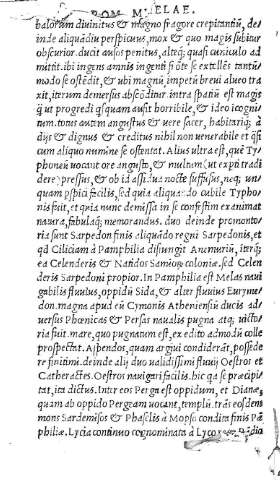 POM. MELAE.
balorum diuinitus & magno fragore crepitantiũ, de/
inde aliquãdiu perspicuus, mox & quo magis subitur
obscurior. ducit ausos penitus, alteq; quasi cuniculo ad
mittit. ibi ingens amnis ingenti fõte se extellẽs tantũ/
modo se ostẽdit, & ubi magnũ impetũ breui alueo tra
xit, iterum demersus absconditur intra spatiũ est magis
q̃ ut progredi q̃squam ausit horribile, & ideo icognitum
rum. totus autem angustus & uere sacer, habitariq; à
dijs & dignus & creditus nihil non uenerabile et q̃si
cum aliquo numine se ostentat. Alius ultra est, quẽ Ty/
phoneũ uocant ore angusto, & multum (ut experti tradi
dere) pressus, & ob id assidua nocte suffusus, neq; un/
quam pspici facilis, sed quia aliquãdo cubile Typho/
nis fuit, et quia nunc demissa in se confestim exanimat
natura, fabulaq; memorandus. duo deinde promonto/
ria sunt Sarpedon finis aliquãdo regni Sarpedonis, et
qd Ciliciam à Pamphilia disiungit Anemuriũ, iterq;
ea Celenderis & Natidos Samiorũ coloniæ. sed Celen
deris Sarpedoni propior. In Pamphilia est Melas naui
gabilis fluuius, oppidũ Sida, & alter fluuius Eurymedon
don. magna apud eũ Cymonis Atheniensiũ ducis ad/
uersus Phœnicas & Persas naualis pugna atq; uicto/
ria fuit. mare, quo pugnatum est, ex edito admodũ colle
prospectat Aspendos, quam argiui condiderãt, possede
re finitimi. deinde alij duo ualidissimi fluuij Oestros et
Catheractes. Oestros nauigari facilis. hic qa se præcipi/
tat, ita dictus. Inter eos Perga est oppidum, et Dianæ,
quam ab oppido Pergeam uocant, templũ. trãs eosdem
mons Sardemisos & Phaselis à Mopso condita finis Pã
philiæ. Lycia continuo cognominata à Lyco rege Pãdio